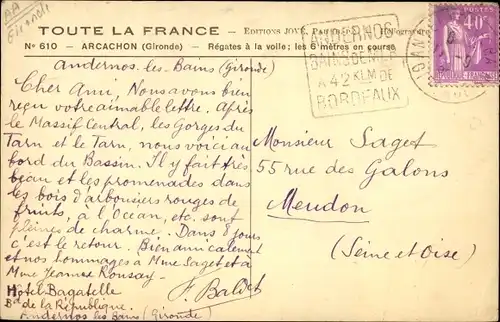 AA
Gironde
TOUTE LA FRANCE - EDITIONS JOVÉ,
No 610 - ARCACHON (Gironde) Régates à la voile; les 6 mètres en course
ANDERNOS
BAINS DE MER
A 42 KLM DE
BORDEAUX
40c
POSTES
Andernos-les-Bains (Gironde)
Cher Ami, Nous avons bien
reçu votre aimable lettre. Après
le Massif Central, les Gorges du
Tarn et le Tarn, nous voici au
bord du Bassin. Il y fait très
beau et les promenades dans
les bois d'arbousiers rouges de
fruits, à l'Océan, etc. sont
pleines de charme. Dans 8 jours
c'est le retour. Bien amicalement
et nos hommages à Mme Saget et à
Mme Jeanne Ronsay.
F. Baldet
Hôtel Bagatelle
Bd de la République
Andernos les Bains (Gironde)
Monsieur Saget
55 rue des Galons
Meudon
(Seine et Oise)